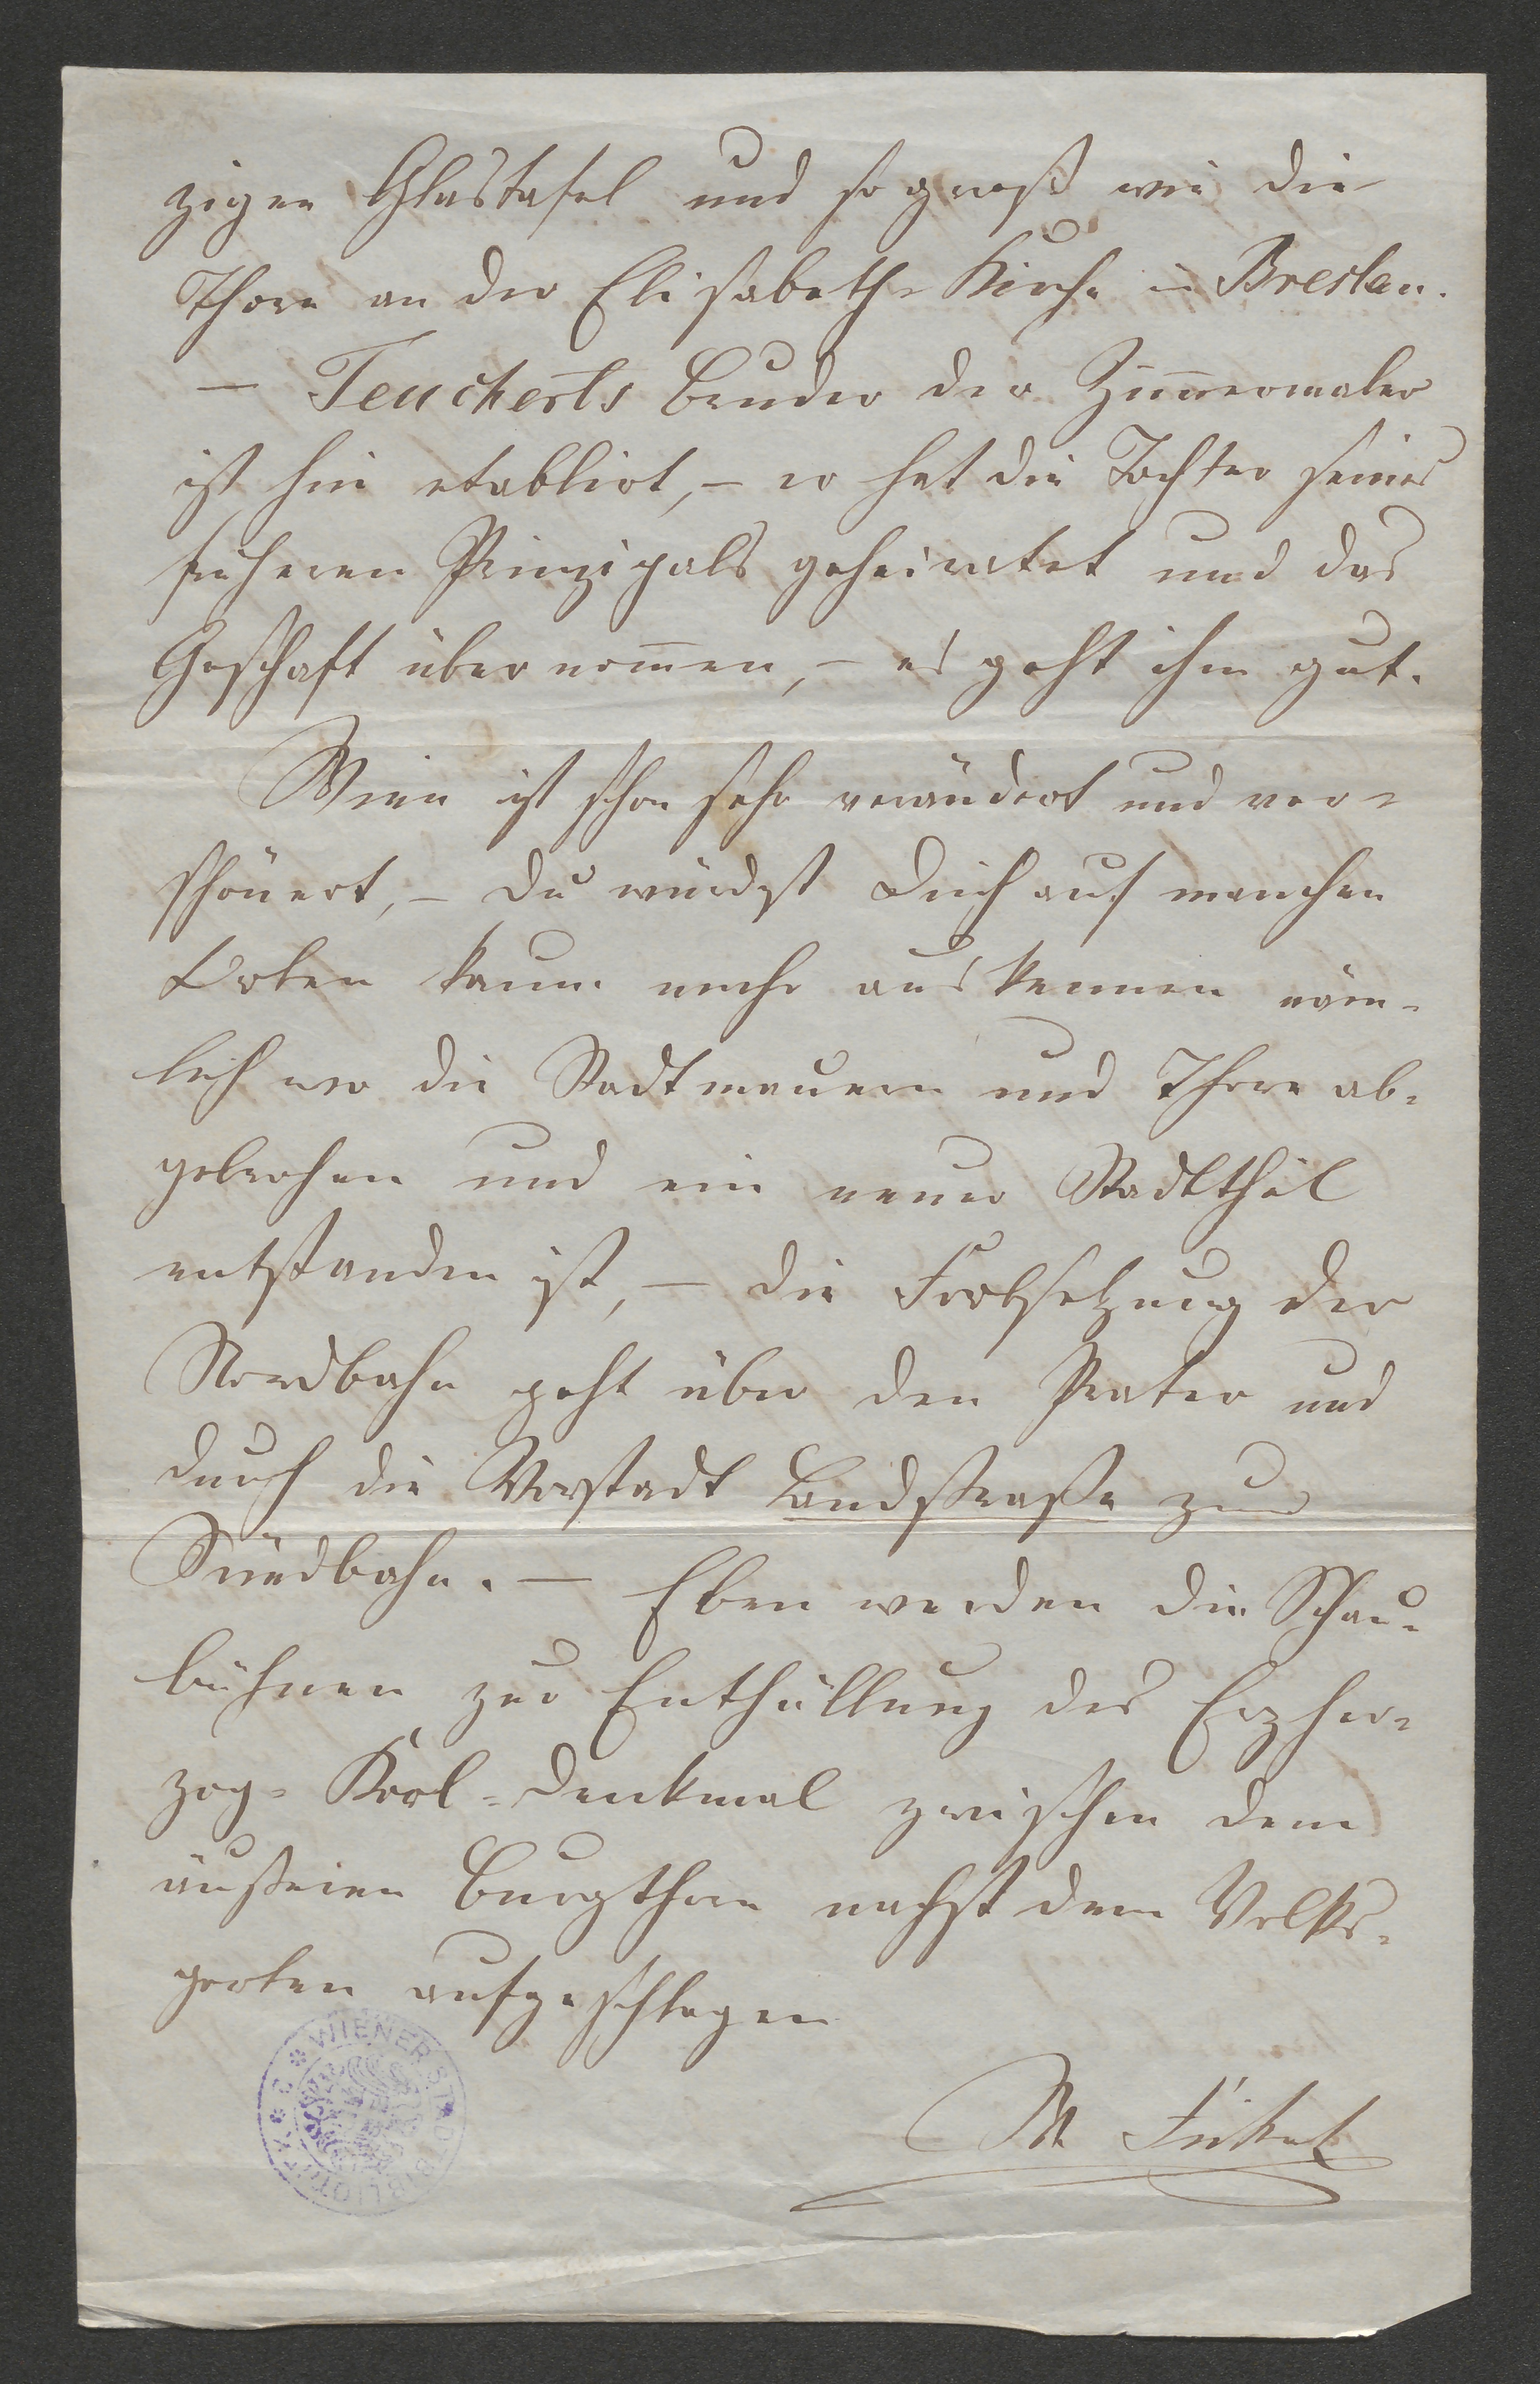 zigen Glastafel und so groß wie die
Thore an der Elisabeth-Kirche in Breslau.
— Teucherts Bruder der Zim̅ermaler
ist hier etablirt, – er hat die Tochter seines
früheren Prinzipals geheiratet und das
Geschäft übernom̅en, – es geht ihm gut.
Wien ist schon sehr verändert und ver-
schönert, – Du würdest Dich auf manchen
Orten kaum mehr auskennen näm-
lich wo die Stadtmauern und Thore ab-
gebrochen und ein neuer Stadttheil
entstanden ist, – die Fortsetzung der
Nordbahn geht über den Prater und
durch die Vorstadt Landstrasse zur
Südbahn. — Eben werden die Schau-
bühnen zur Enthüllung des Erzher-
zog-Karl-Denkmal zwischen dem
äußeren Burgthor nächst dem Volks-
garten aufgeschlagen
M
WIENER STADTBIBLIOTHEK